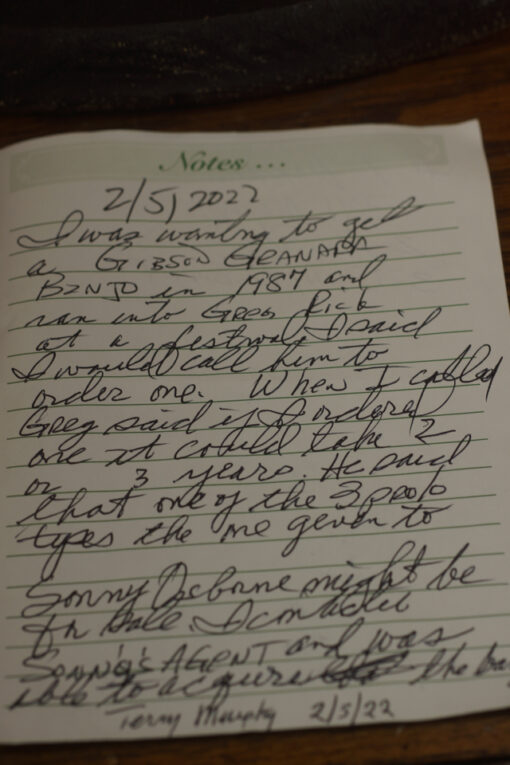 Notes ...
2/5/2022
I was wanting to get
a GIBSON GRANADA
BANJO in 1987 and
ran into Greg Rich
at a festival I said
I would call him to
order one. When I called
Greg said if I ordered
one it could take 2
or 3 years. He said
that one of the 3 proto
types the one given to
Sonny Osborne might be
for sale. I contacted
SONNY'S AGENT and was
able to acquire the
Terry Murphy 2/5/22